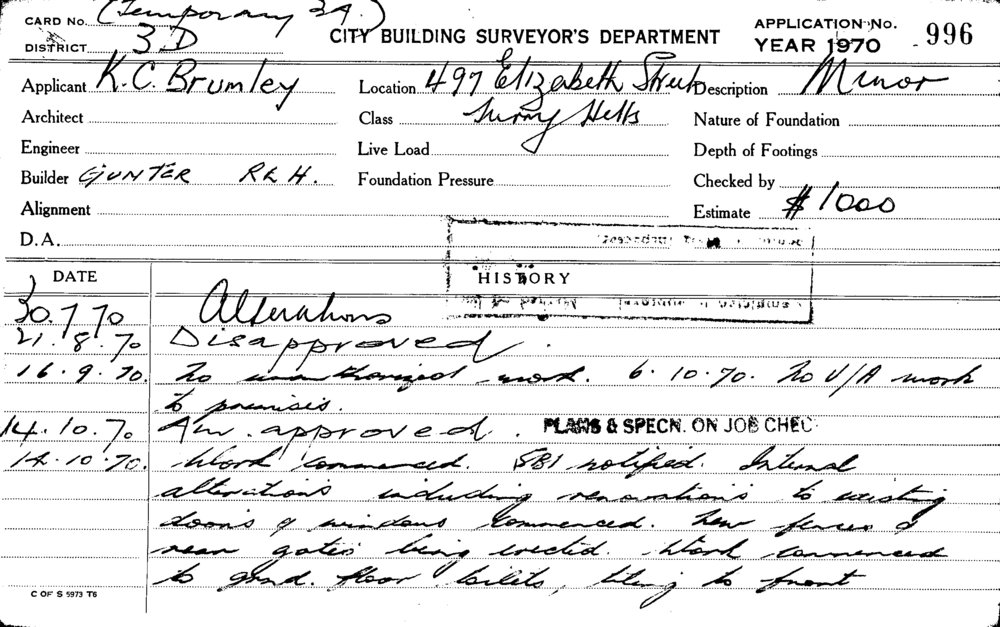 CARD No. (Temporary 3A.)
DISTRICT 3D
CITY BUILDING SURVEYOR'S DEPARTMENT
APPLICATION No. 996
YEAR 1970
Applicant K.C. Brumley
Location 497 Elizabeth Street
Description Minor
Architect
Class Surry Hills
Nature of Foundation
Engineer
Live Load
Depth of Footings
Builder GUNTER R & H.
Foundation Pressure
Checked by
Alignment
Estimate $1000
D.A.
DATE
HISTORY
30.7.70 Alterations
21.8.70 Disapproved.
16.9.70. No unauthorized work. 6.10.70. No U/A work
to premises.
14.10.70 Am. approved. PLANS & SPECN. ON JOB CHEC
14.10.70. Work commenced. SBI notified. Internal
alterations including renovations to existing
doors & windows commenced. New fences &
rear gates being erected. Work commenced
to grnd. floor toilets, tiling to front
C OF S 5973 T6